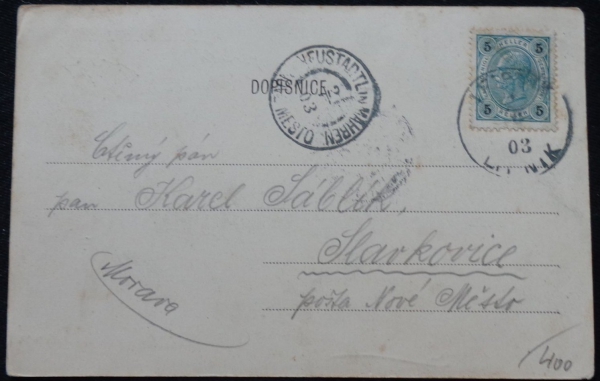 DOPISNICE
NEUSTADTL IN MÄHREN.
MĚSTO
03
5 HELLER 5
5 5
03
Ctěný pán
pan Karel Sáblík,
Slavkovice
pošta Nové Město
Morava
400